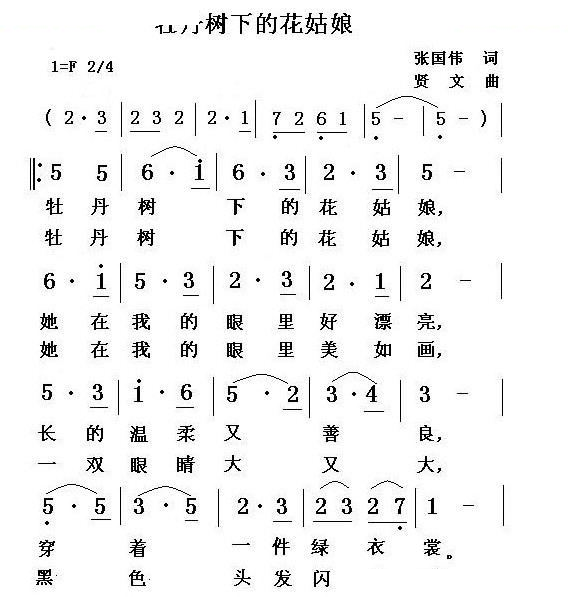 牡丹树下的花姑娘
1=F 2/4
张国伟 词
贤 文 曲
( 2· 3 | 2 3 2 | 2· 1 | 7 2 6 1 | 5 - | 5 - )
5 5 | 6· 1 | 6· 3 | 2· 3 | 5 -
牡 丹 树 下 的 花 姑 娘,
牡 丹 树 下 的 花 姑 娘,
6· 1 | 5· 3 | 2· 3 | 2· 1 | 2 -
她 在 我 的 眼 里 好 漂 亮,
她 在 我 的 眼 里 美 如 画,
5· 3 | 1· 6 | 5· 2 | 3· 4 | 3 -
长 的 温 柔 又 善 良,
一 双 眼 睛 大 又 大,
5· 5 | 3· 5 | 2· 3 | 2 3 2 7 | 1 -
穿 着 一 件 绿 衣 裳。
黑 色 头 发 闪